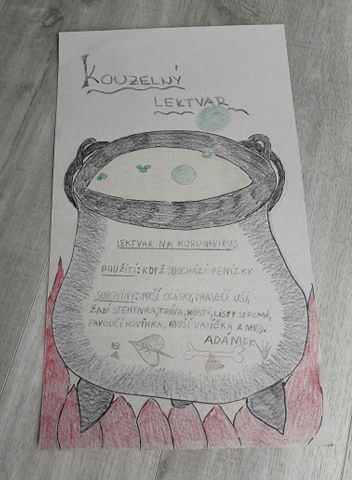 KOUZELNÝ
LEKTVAR
LEKTVAR NA KORUNAVIRUS
POUŽITÍ: KDYŽ DOCHÁZÍ PENÍZKY
SUROVINY: MYŠÍ OCÁSKY, PRASEČÍ UŠI,
ŽABÍ STEHÝNKA, TRÁVA, KOSTI, LISTY STROMŮ,
PAVOUČÍ HOVÍNKA, MUŠÍ VAJÍČKA A MED.
ADÁMEK